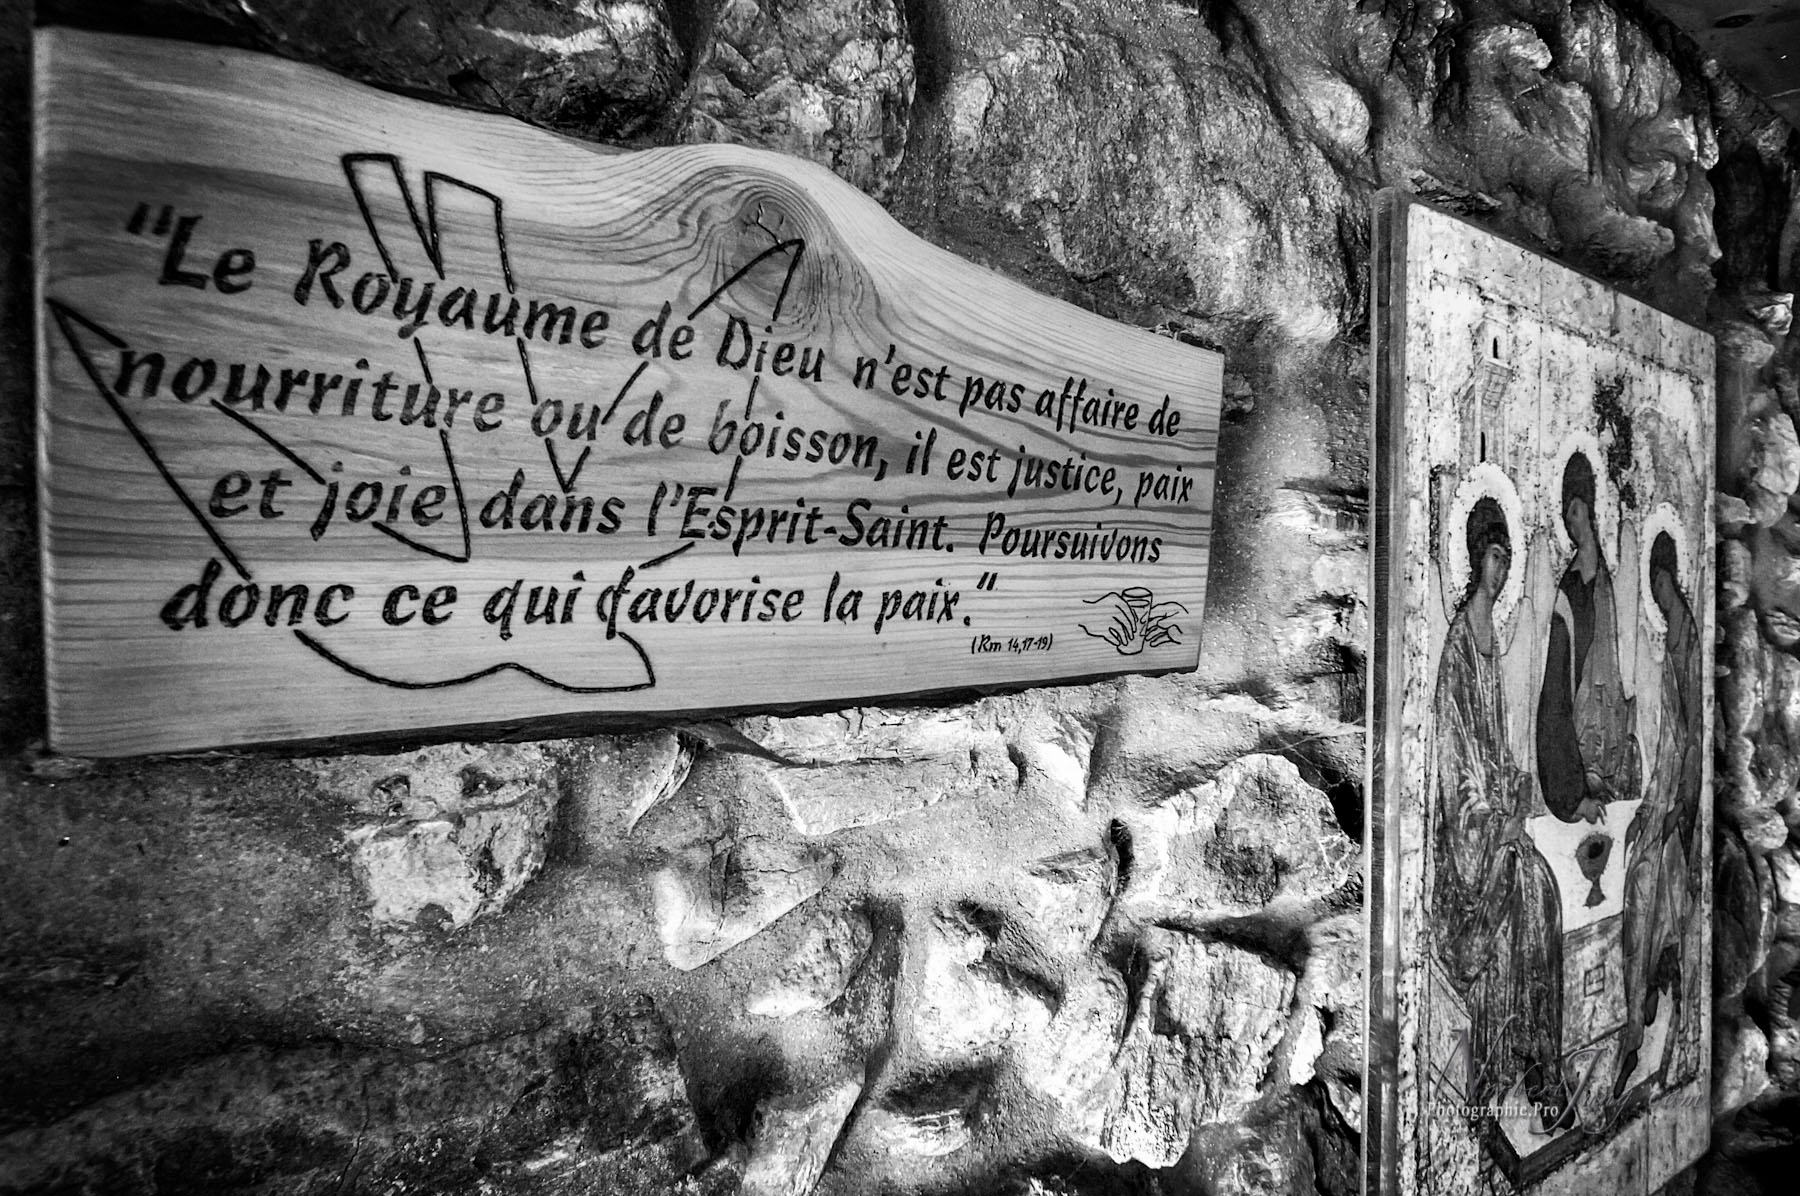 "Le Royaume de Dieu n'est pas affaire de
nourriture ou de boisson, il est justice, paix
et joie dans l'Esprit-Saint. Poursuivons
donc ce qui favorise la paix."
(Rm 14,17-19)
Photographic.Pro